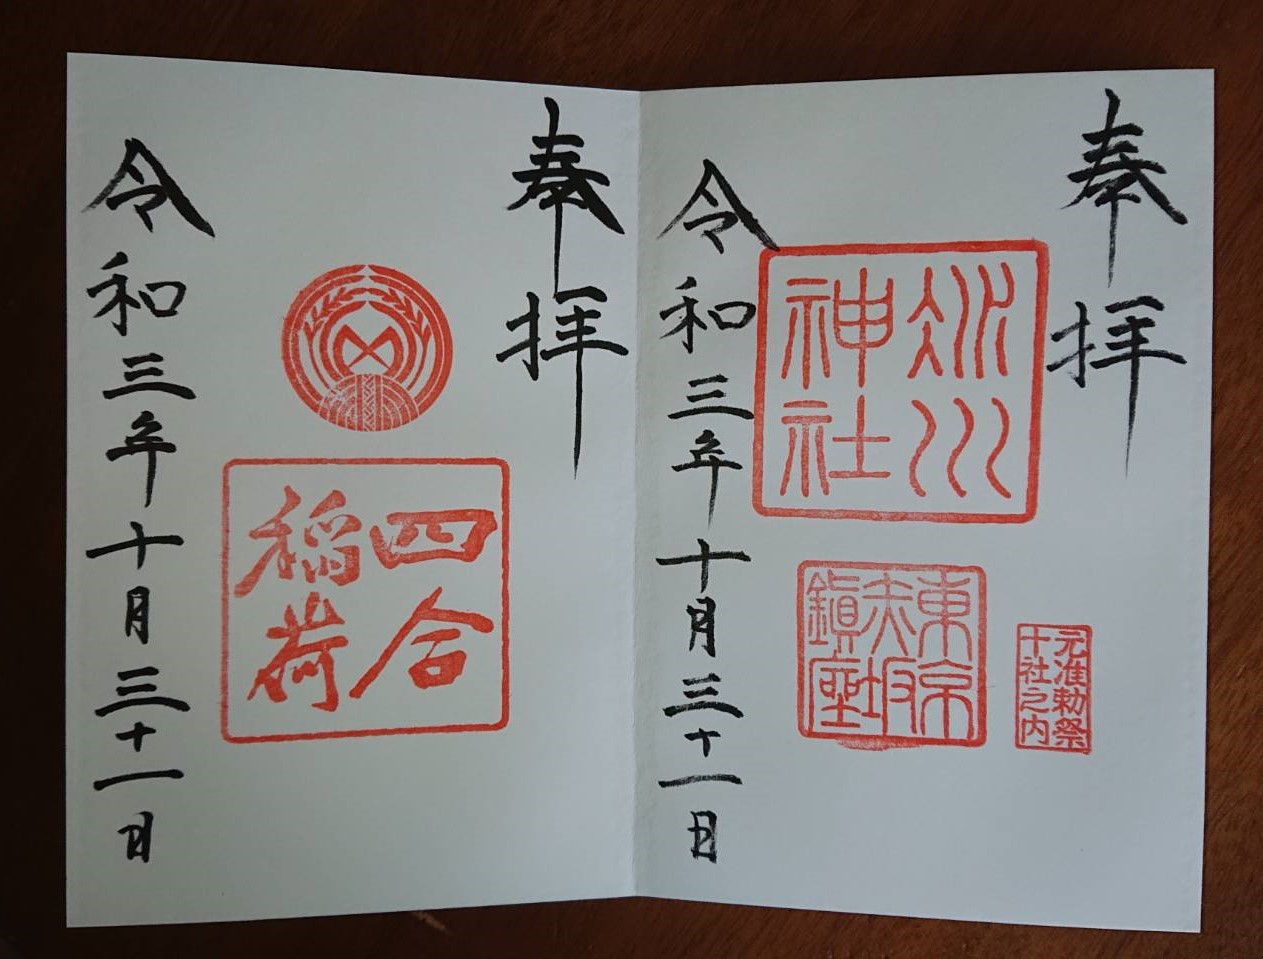 奉拝
冰川
神社
東京
赤坂
鎭座
元准勅祭
十社之内
令和三年十月三十一日
奉拝
四合
稲荷
令和三年十月三十一日